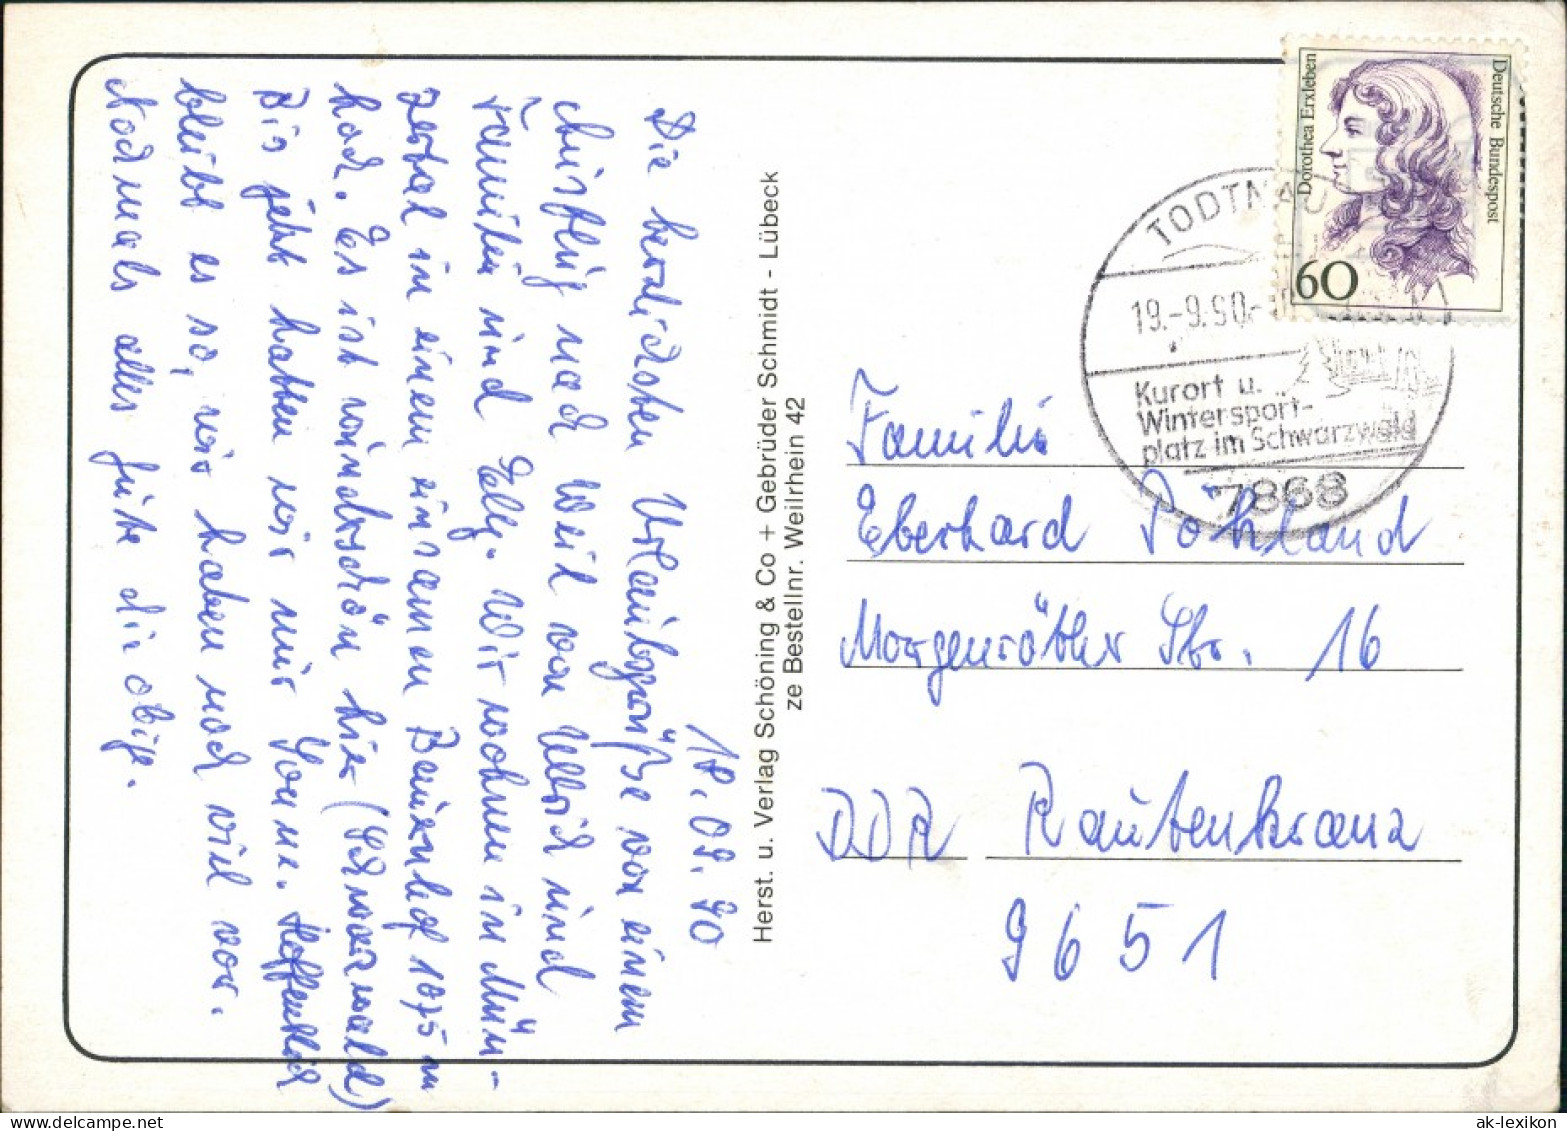 18.09.90
Die herzlichsten Urlaubsgrüße von einem
Ausflug nach Weil von Ulrich und
Familie und Elly. Wir wohnen im Mün-
stertal in einem einsamen Bauernhof 1075 m
hoch. Es ist wunderschön hier (Schwarzwald)
Bis jetzt hatten wir nur Sonne. Hoffentlich
bleibt es so, wir haben noch viel vor.
Nochmals alles Gute die obige.
Herst. u. Verlag Schöning & Co + Gebrüder Schmidt - Lübeck
ze Bestellnr. Weilrhein 42
Deutsche Bundespost
Dorothea Erxleben
60
TODTNAU
19.-9.90.-
Kurort u.
Wintersport-
platz im Schwarzwald
7868
Familie
Eberhard Pohland
Morgenröther Str. 16
DDR Rautenkranz
9651
ak-lexikon